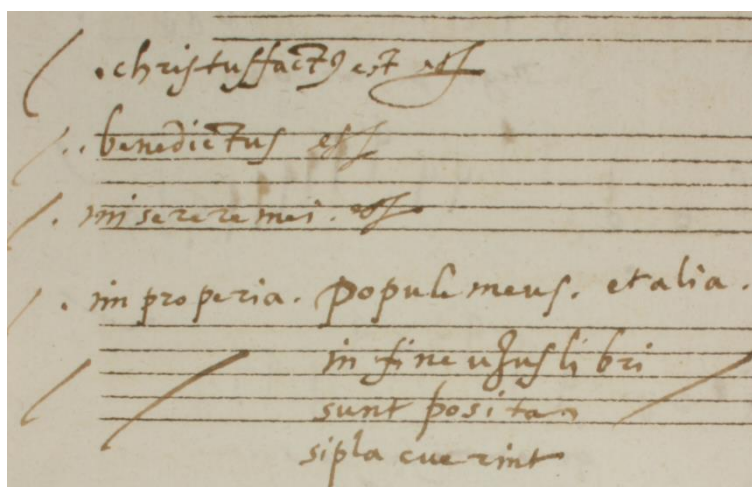 . christus factꝰ est
.. benedictus
. miserere mei.
. improperia. popule meus. et alia.
in fine usus libri
sunt posita
si placuerint